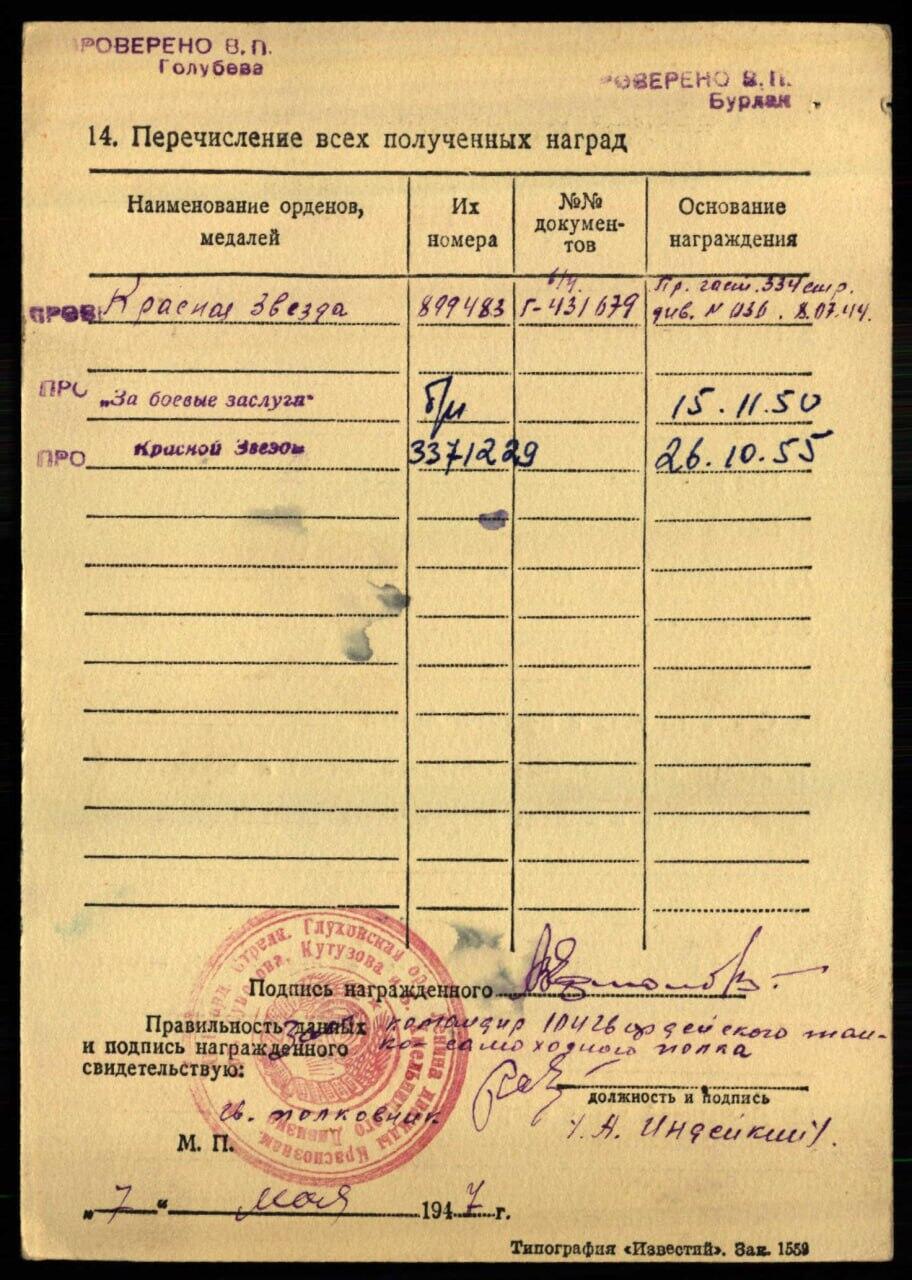 РОВЕРЕНО В.П.
Голубева
РОВЕРЕНО В.П.
Бурлак
14. Перечисление всех полученных наград
Наименование орденов, медалей
Их номера
№№ докумен-тов
Основание награждения
ПРОВ Красная Звезда 899483 б/у. Г-431679 Пр. 334 стр. див. N 036. 8.07.44.
ПРО „За боевые заслуги“ б/н 15.11.50
ПРО Красной Звезды 3371229 26.10.55
Подпись награжденного
Правильность данных командир 104 гвардейского тан-
и подпись награжденного ко-самоходного полка
свидетельствую:
должность и подпись
гв. полковник
М. П. /. А. Индейкин/.
Глуховская
Кутузова
Краснознам.
„7“ мая 1947 г.
Типография «Известий». Зак. 1559